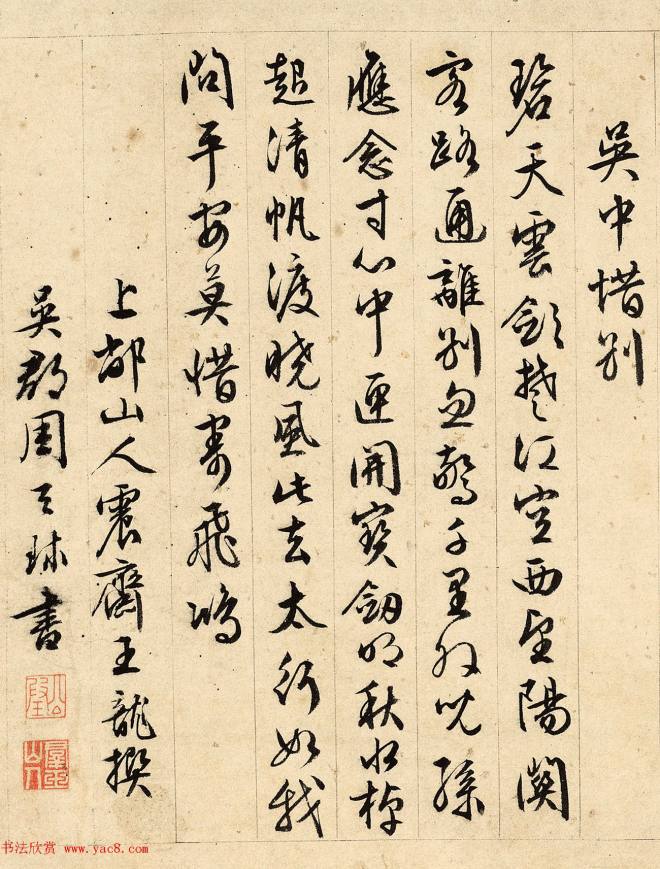 吳中惜别
碧天雲斂楚江空西望陽關
客路通離别忽驚千里外
應念寸心中匣開寶劒明秋水棹
起清帆渡曉風此去太行如我
問平安莫惜寄飛鴻
上都山人震齋王龍撰
吳郡周天球書
书法欣赏 www.yac8.com